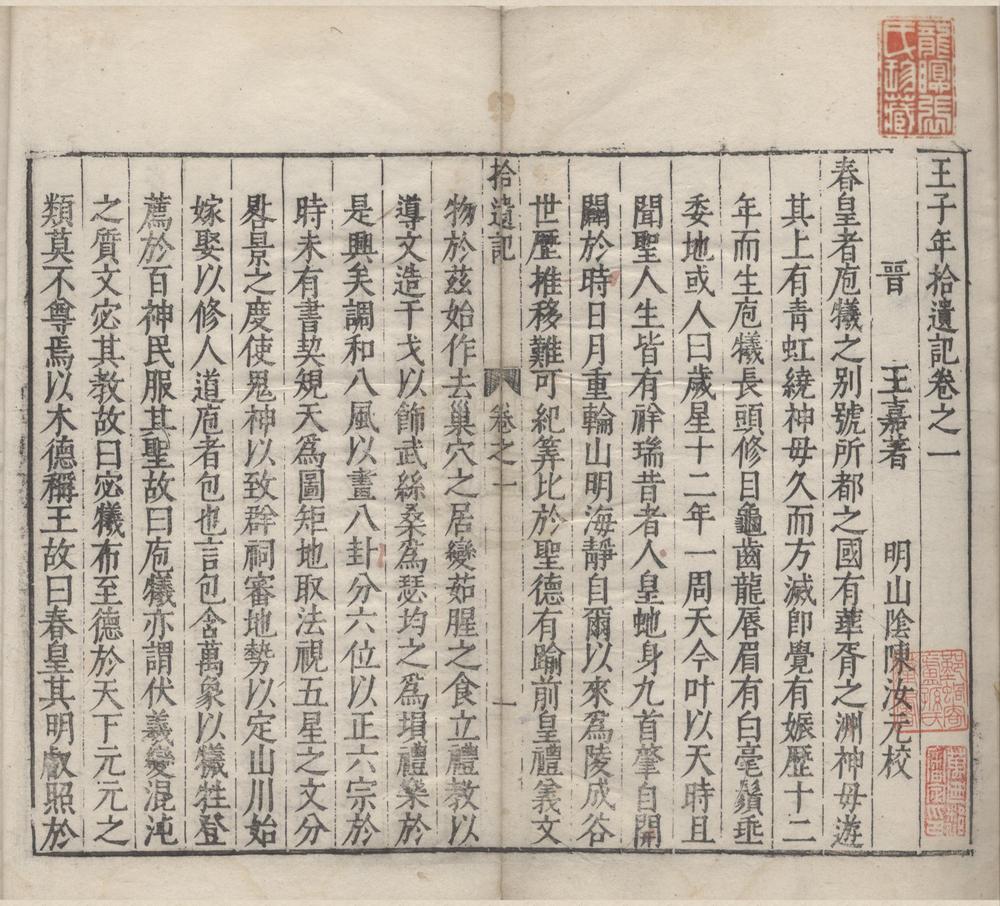 王子年拾遺記卷之一
晉　王嘉著　明山陰陳汝元校
春皇者庖犧之别號所都之國有華胥之洲神母遊
其上有青虹繞神母久而方滅卽覺有娠歷十二
年而生庖犧長頭修目龜齒龍唇眉有白毫鬚垂
委地或人曰歲星十二年一周天今叶以天時且
聞聖人生皆有祥瑞昔者人皇虵身九首肇自開
闢於時日月重輪山明海靜自爾以來爲陵成谷
世歷推移難可紀筭比於聖德有踰前皇禮義文
拾遺記　卷之一　一
物於茲始作去巢穴之居變茹腥之食立禮教以
導文造干戈以飾武絲桑爲瑟均之爲塤禮樂於
是興矣調和八風以畫八卦分六位以正六宗於
時未有書契規天爲圖矩地取法視五星之文分
晷景之度使鬼神以致群祠審地勢以定山川始
嫁娶以修人道庖者包也言包含萬象以犧牲登
薦於百神民服其聖故曰庖犧亦謂伏羲變混沌
之質文宓其教故曰宓犧布至德於天下元元之
類莫不尊焉以木德稱王故曰春皇其明叡照於
龍眠張氏珍藏